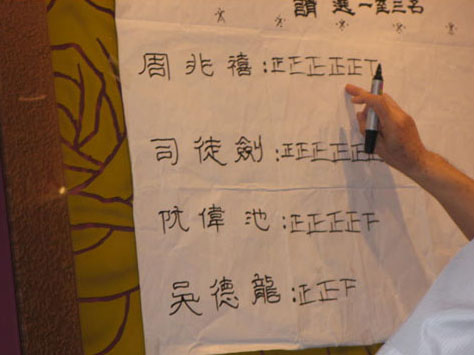 請選一至三名
周兆禧:正正正正正丅
司徒劍:正正正正正
阮偉池:正正正正下
吳德龍:正正下